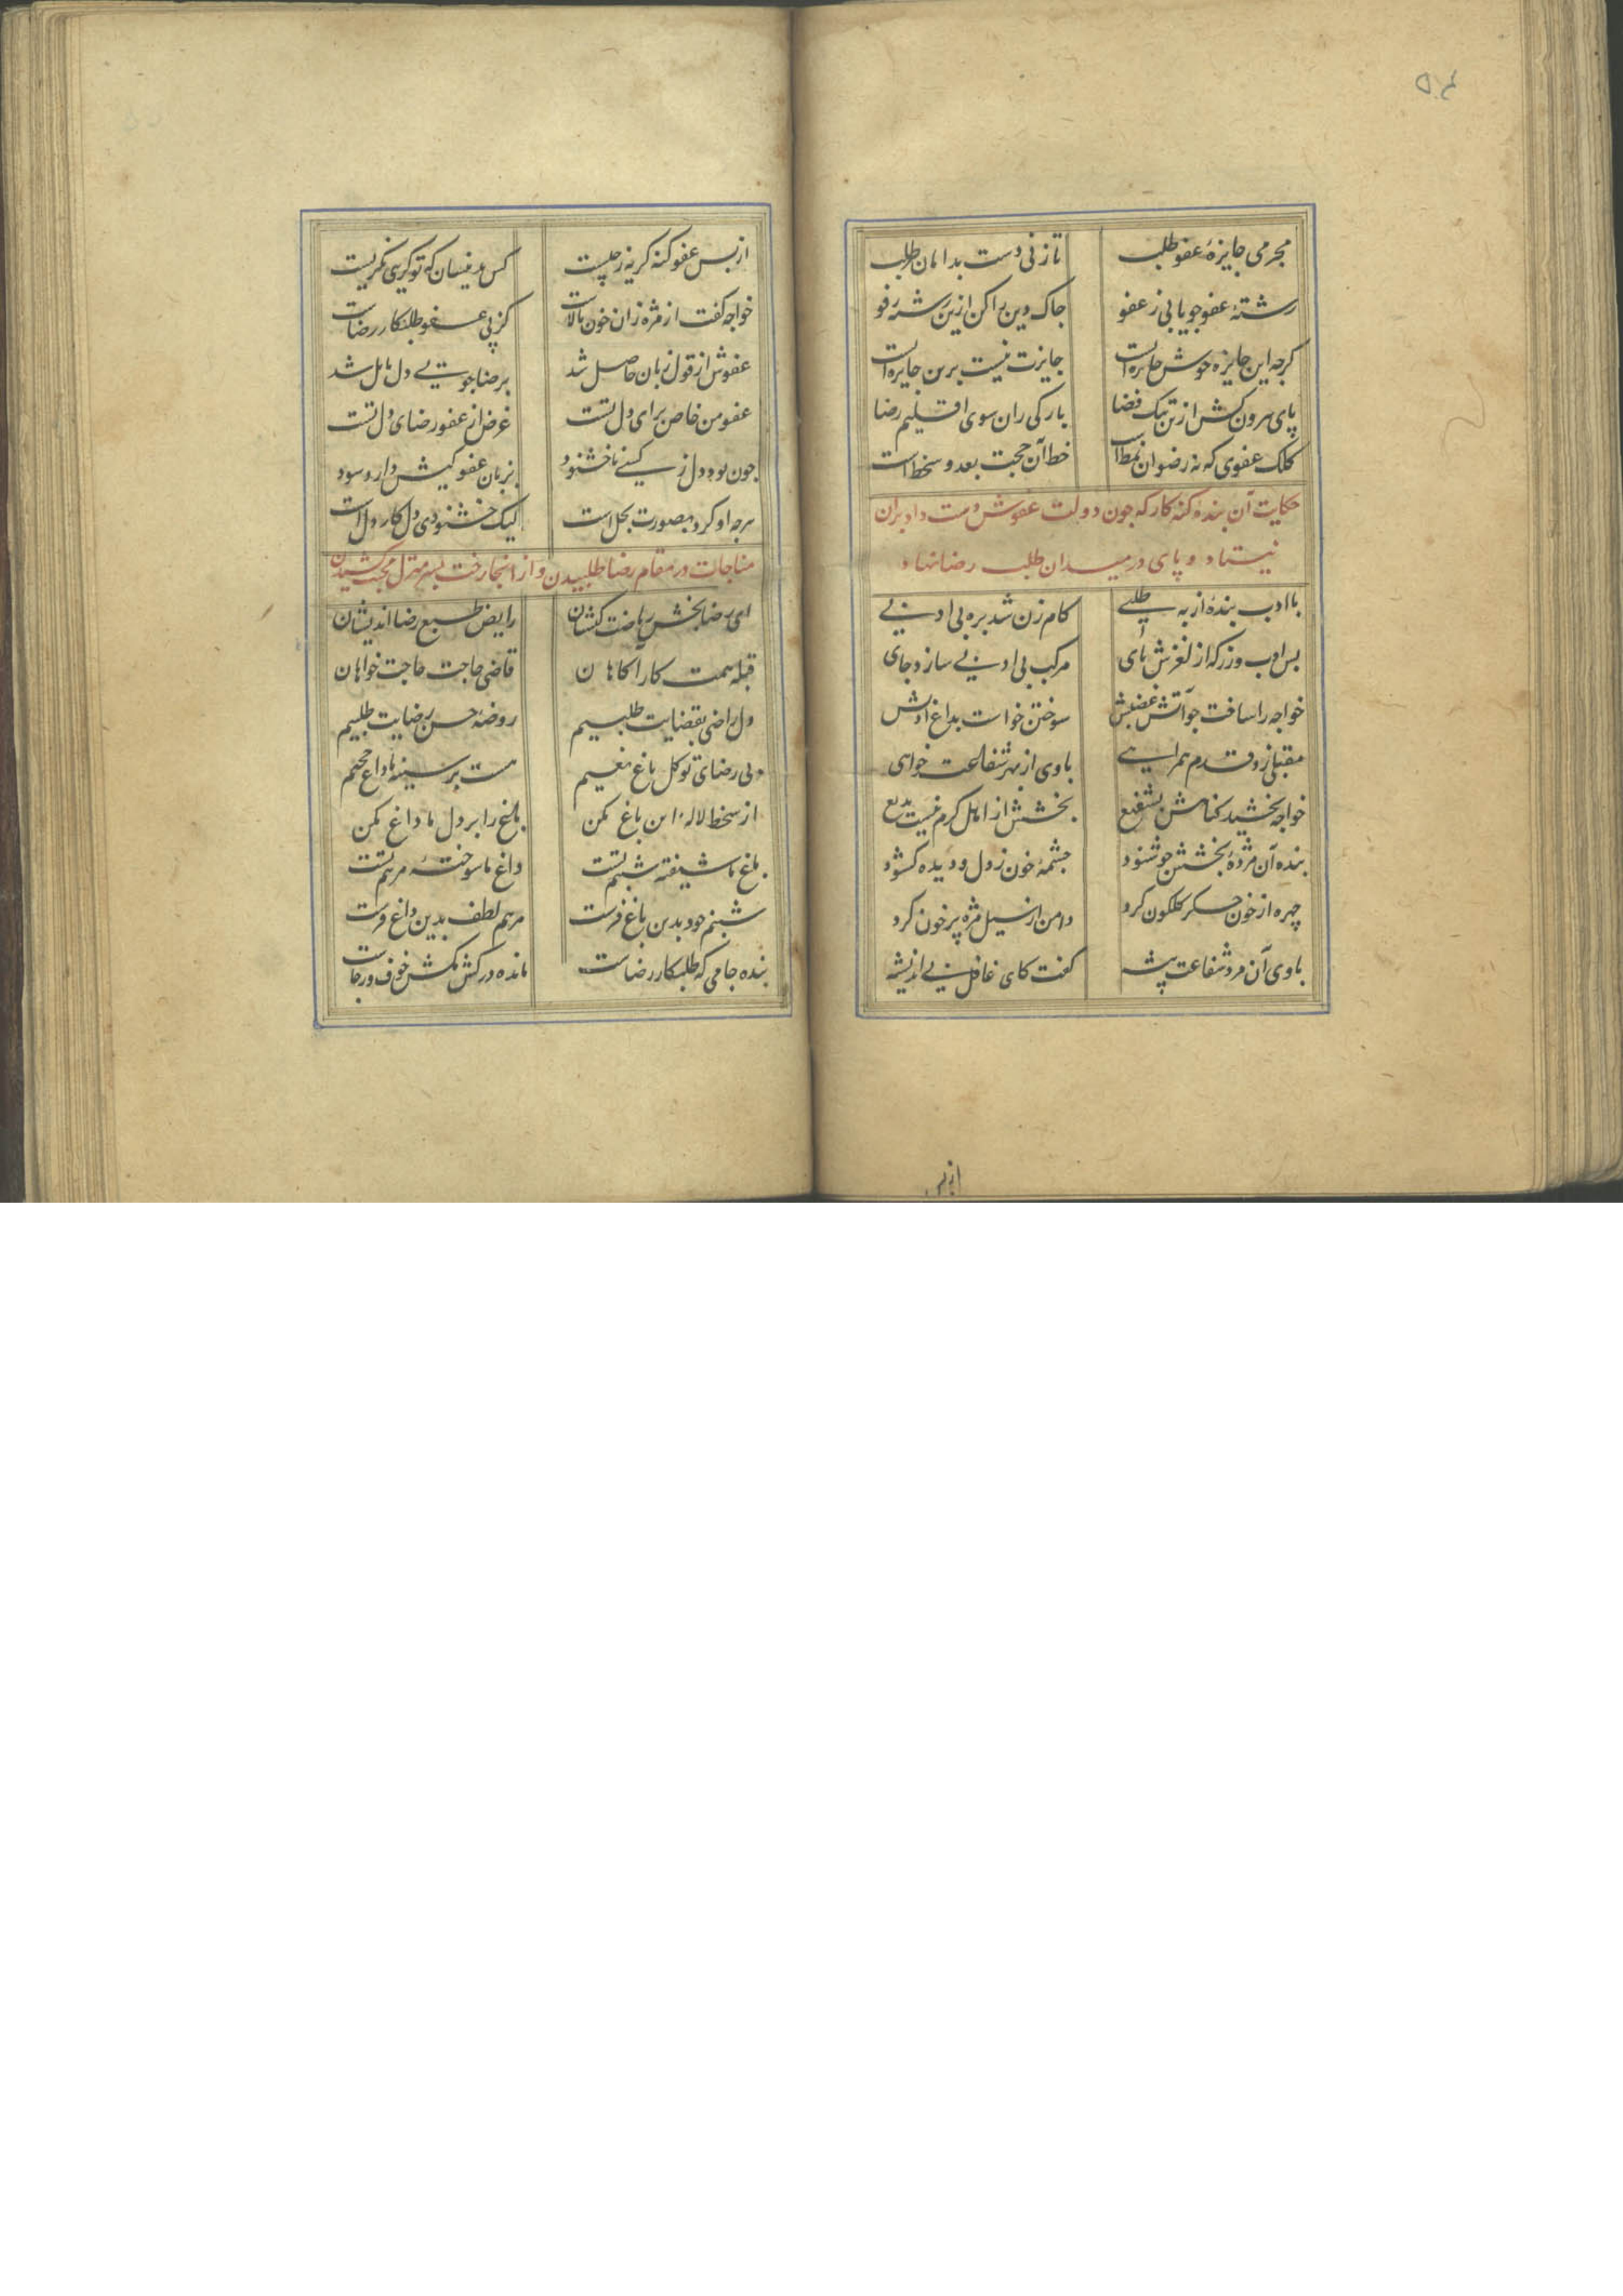 ۵۴
مجرمی جایزهٔ عفو طلب تا زنی دست بدامان طرب
رشتهٔ عفو جو یابی ز عفو جاک دین را کن ازین رشته رفو
کرچه این جایزه خوش جایزه است جایزت نیست برین جایزه است
پای بیرون کش ازین تنک فضا بارکی ران سوی اقلیم رضا
کلک عفوی که نه رضوان نمط است خط آن حجت بعد و سخط است
حکایت آن بندهٔ کنه کار که جون دولت عفوش دست داد بران
نیستاد و پای در میدان طلب رضا نهاد
با ادب بندهٔ از به طلبی کام زن شد بره بی ادبی
بس ادب ورز که از لغزش پای مرکب بی ادبی سازد جای
خواجه را تافت جو آتش غضبش سوختن خواست بداغ ادبش
مقبلی زد قدم همراهی با وی از بهر شفاعت خواهی
خواجه بخشید کناهش بشفیع بخشش از اهل کرم نیست بدیع
بنده آن مژدهٔ بخشش جو شنود جشمهٔ خون ز دل و دیده کشود
چهره از خون جکر کلکون کرد دامن از سیل مژه پر خون کرد
با وی آن مرد شفاعت پیشه کفت کای غافل بی اندیشه
از بس
از بس عفو کنه کریه ز چیست کس بدینسان که تو کریی نکریست
خواجه کفت از مژه زان خون بالاست کز پی عفو طلبکار رضاست
عفوش از قول زبان حاصل شد برضاجویی دل مایل شد
عفو من خاص برای دل تست غرض از عفو رضای دل تست
جون بود دل ز کسی ناخشنود بزبان عفو کیش دارد سود
هرجه او کرد بصورت بحل است لیک خشنودی دل کار دل است
مناجات در مقام رضا طلبیدن و از انجا رخت بسر منزل محبت کشیدن
ای رضابخش ریاضت کشان رایض طبع رضا اندیشان
قبله همت کار اکاهان قاضی حاجت حاجت خواهان
دل راضی بقضایت طلبیم روضهٔ حسن رضایت طلبیم
بی رضای تو کل باغ نعیم هست بر سینه ما داغ جحیم
از سخط لالهٔ این باغ مکن باغ را بر دل ما داغ مکن
باغ ما شیفته شبنم تست داغ ما سوختهٔ مرهم تست
شبنم جود بدین باغ فرست مرهم لطف بدین داغ فرست
بنده جامی که طلبکار رضاست مانده در کش مکش خوف و رجاست